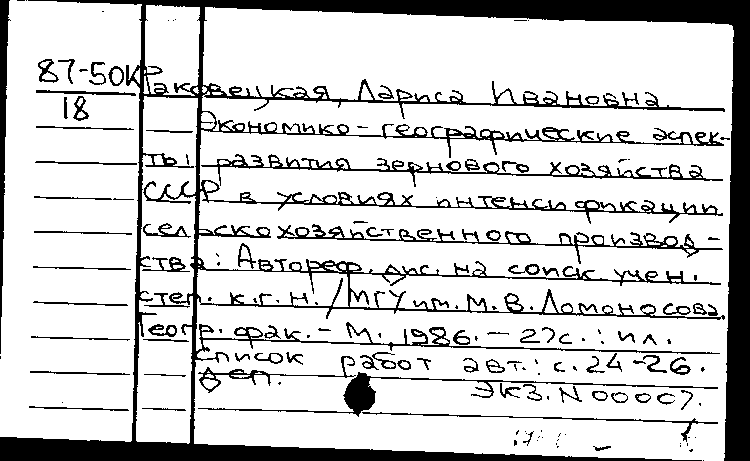 87-50К
18
Раковецкая, Лариса Ивановна.
Экономико-географические аспек-
ты развития зернового хозяйства
СССР в условиях интенсификации
сельскохозяйственного производ-
ства: Автореф. дис. на соиск. учен.
степ. к.г.н. / МГУ им. М.В. Ломоносова.
Геогр. фак. - М., 1986. - 27с.: ил.
Список работ авт.: с. 24-26.
Деп. ЭКЗ. N 00007.